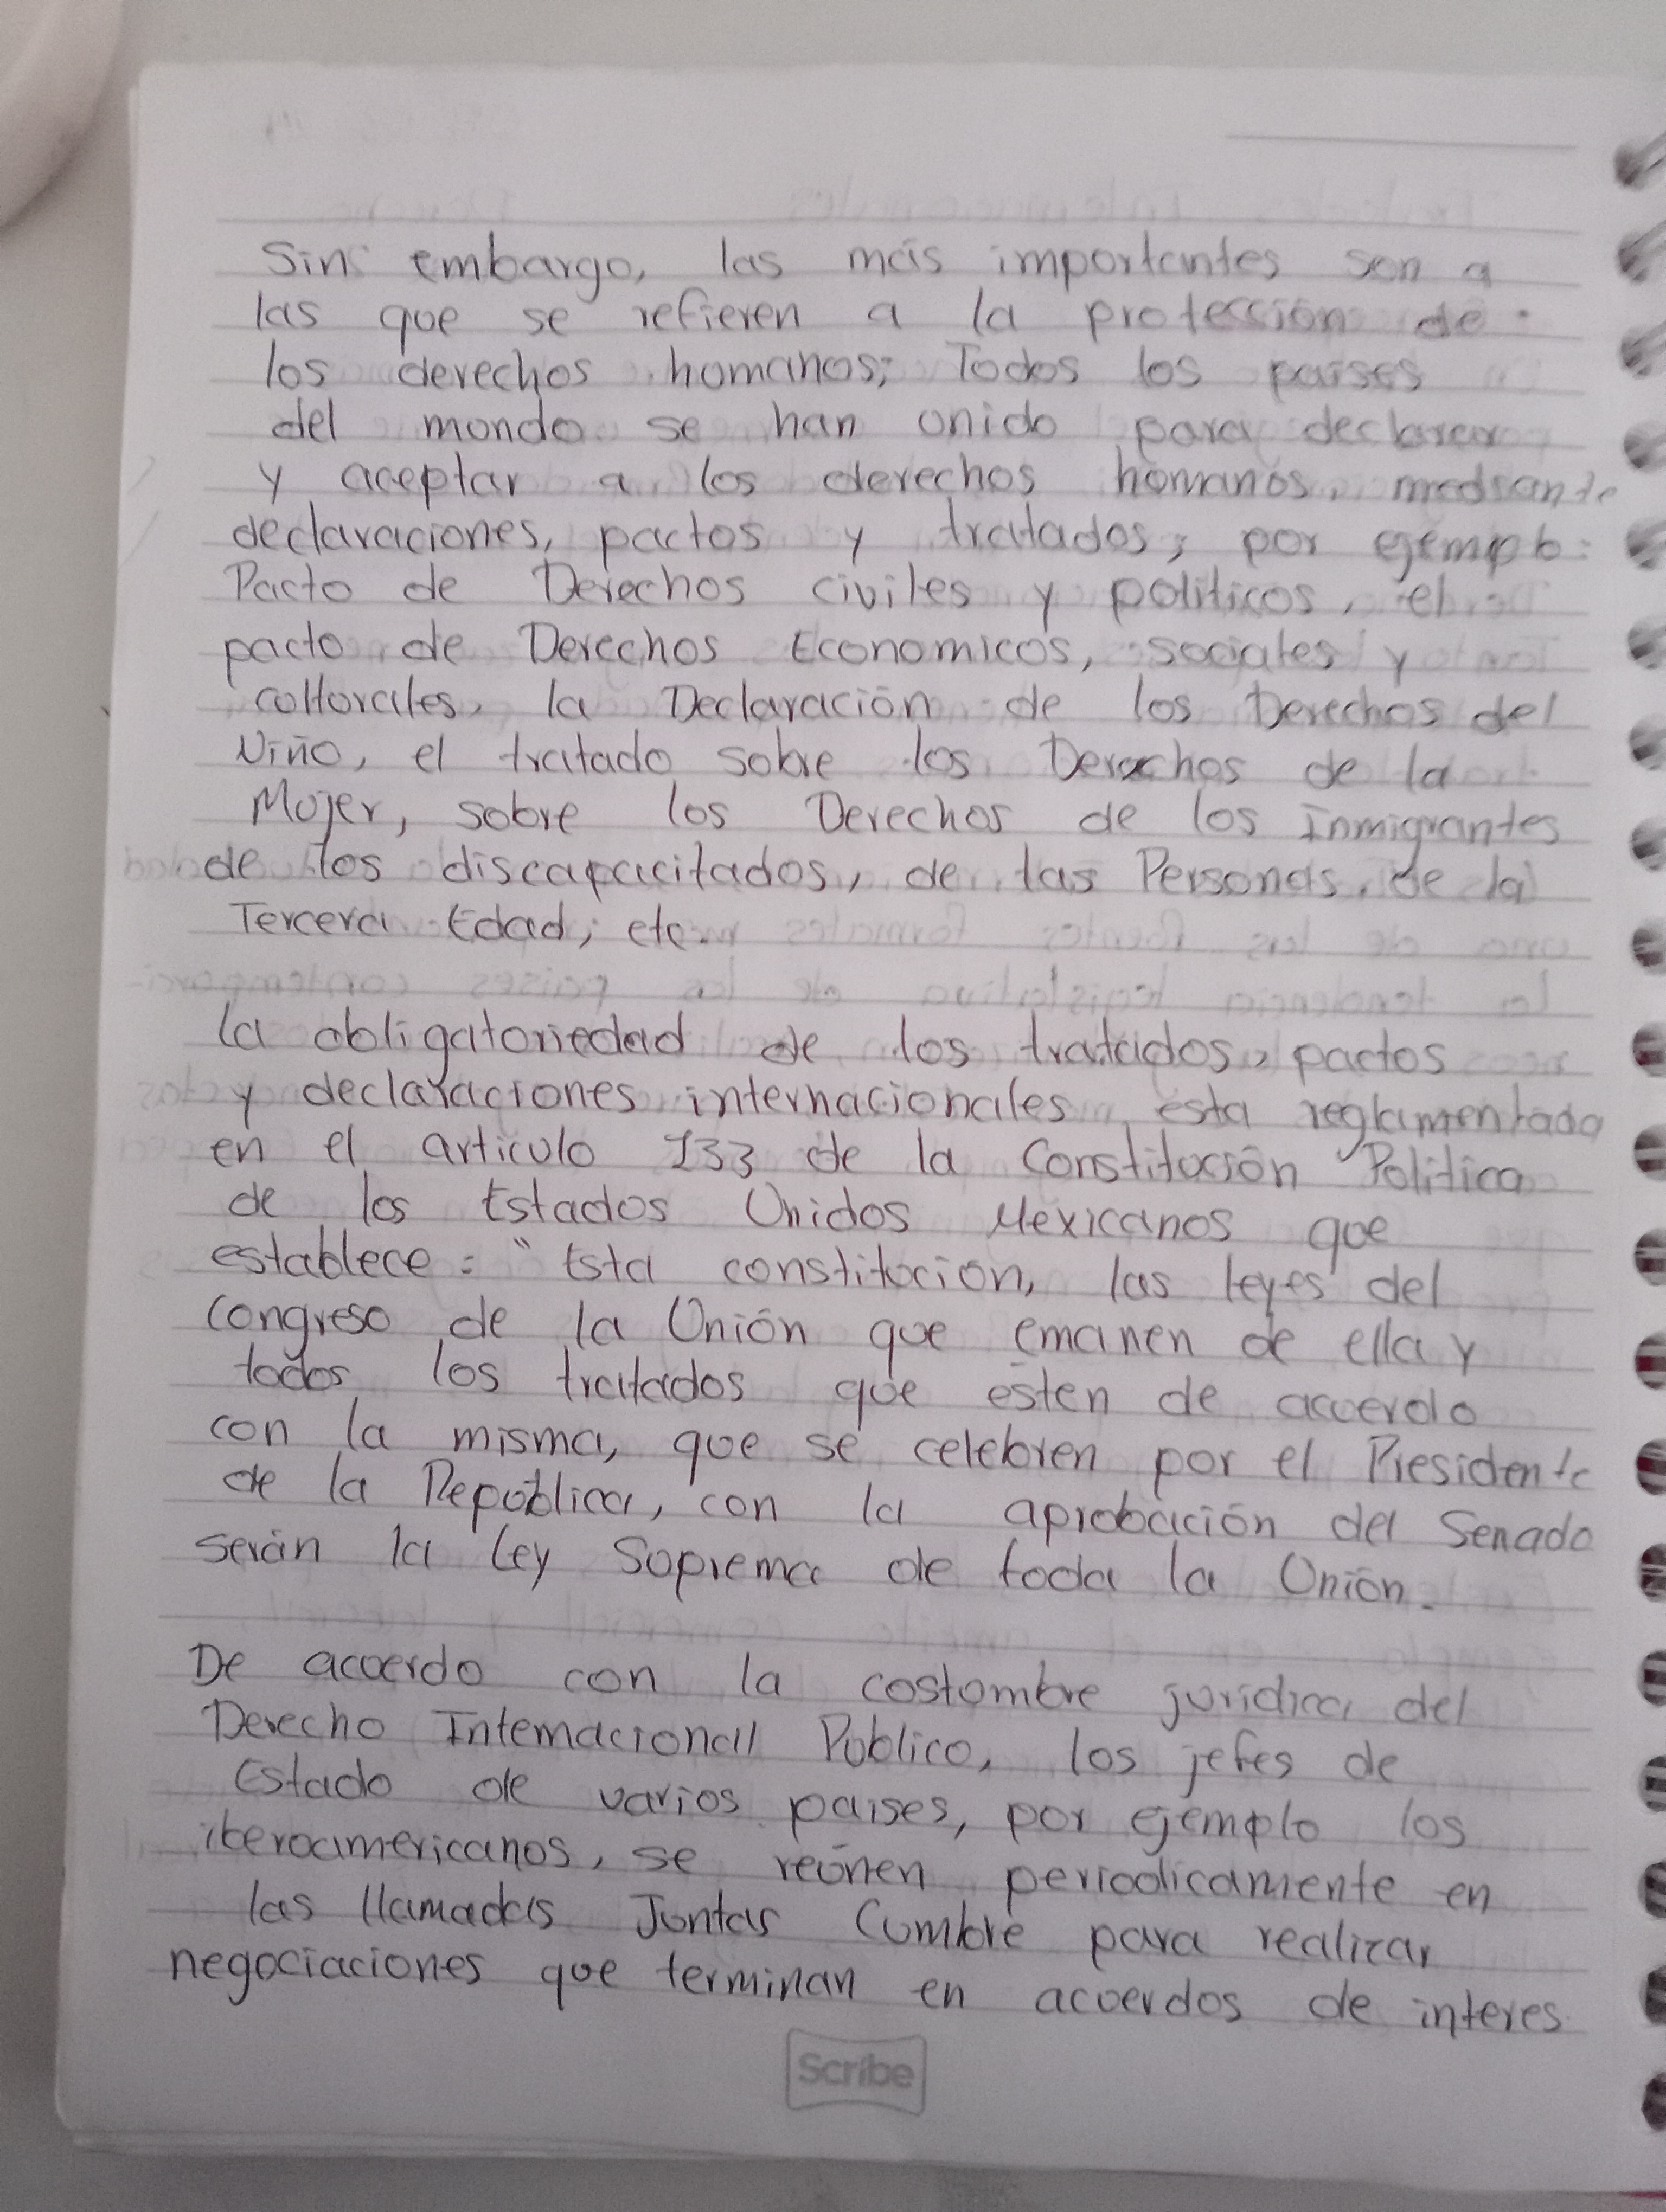 Sin embargo, las más importantes son a
las que se refieren a la protección de
los derechos humanos; Todos los paises
del mundo se han unido para declarar
y aceptar a los derechos humanos, mediante
declaraciones, pactos y tratados; por ejemplo:
Pacto de Derechos civiles y politicos, el
pacto de Derechos Economicos, sociales y
culturales, la Declaración de los Derechos del
Niño, el tratado sobre los Derechos de la
Mujer, sobre los Derechos de los Inmigrantes
de los discapacitados, de las Personas de la
Tercera Edad; etc.
La obligatoriedad de los tratados, pactos
y declaraciones internacionales esta reglamentada
en el articulo 133 de la Constitución Politica
de los Estados Unidos Mexicanos que
establece: " Esta constitucion, las leyes del
Congreso de la Unión que emanen de ella y
todos los tratados que esten de acuerdo
con la misma, que se celebren por el Presidente
de la República, con la aprobación del Senado
serán la Ley Suprema de toda la Unión.
De acuerdo con la costumbre juridica del
Derecho Internacional Publico, los jefes de
Estado de varios paises, por ejemplo los
iberoamericanos, se reúnen periodicamente en
las llamadas Juntas Cumbre para realizar
negociaciones que terminan en acuerdos de interes
Scribe